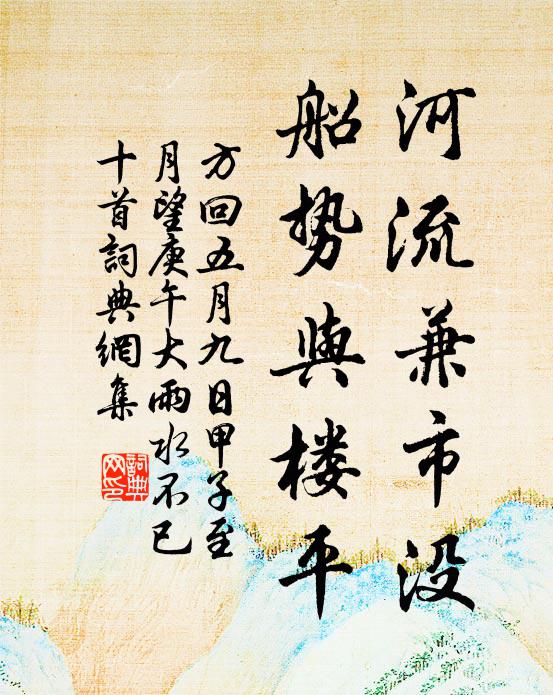 河流兼市没
船势與楼平
方回五月九日甲子至
月望庚午大雨水不已
十首詞典網集
詞典
网印